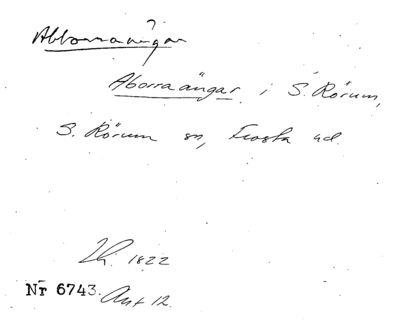 Abborraängar
Aborraängar i S. Rörum,
S. Rörum sn, Frosta hd.
Lh. 1822
Nr 6743. Akt 12.